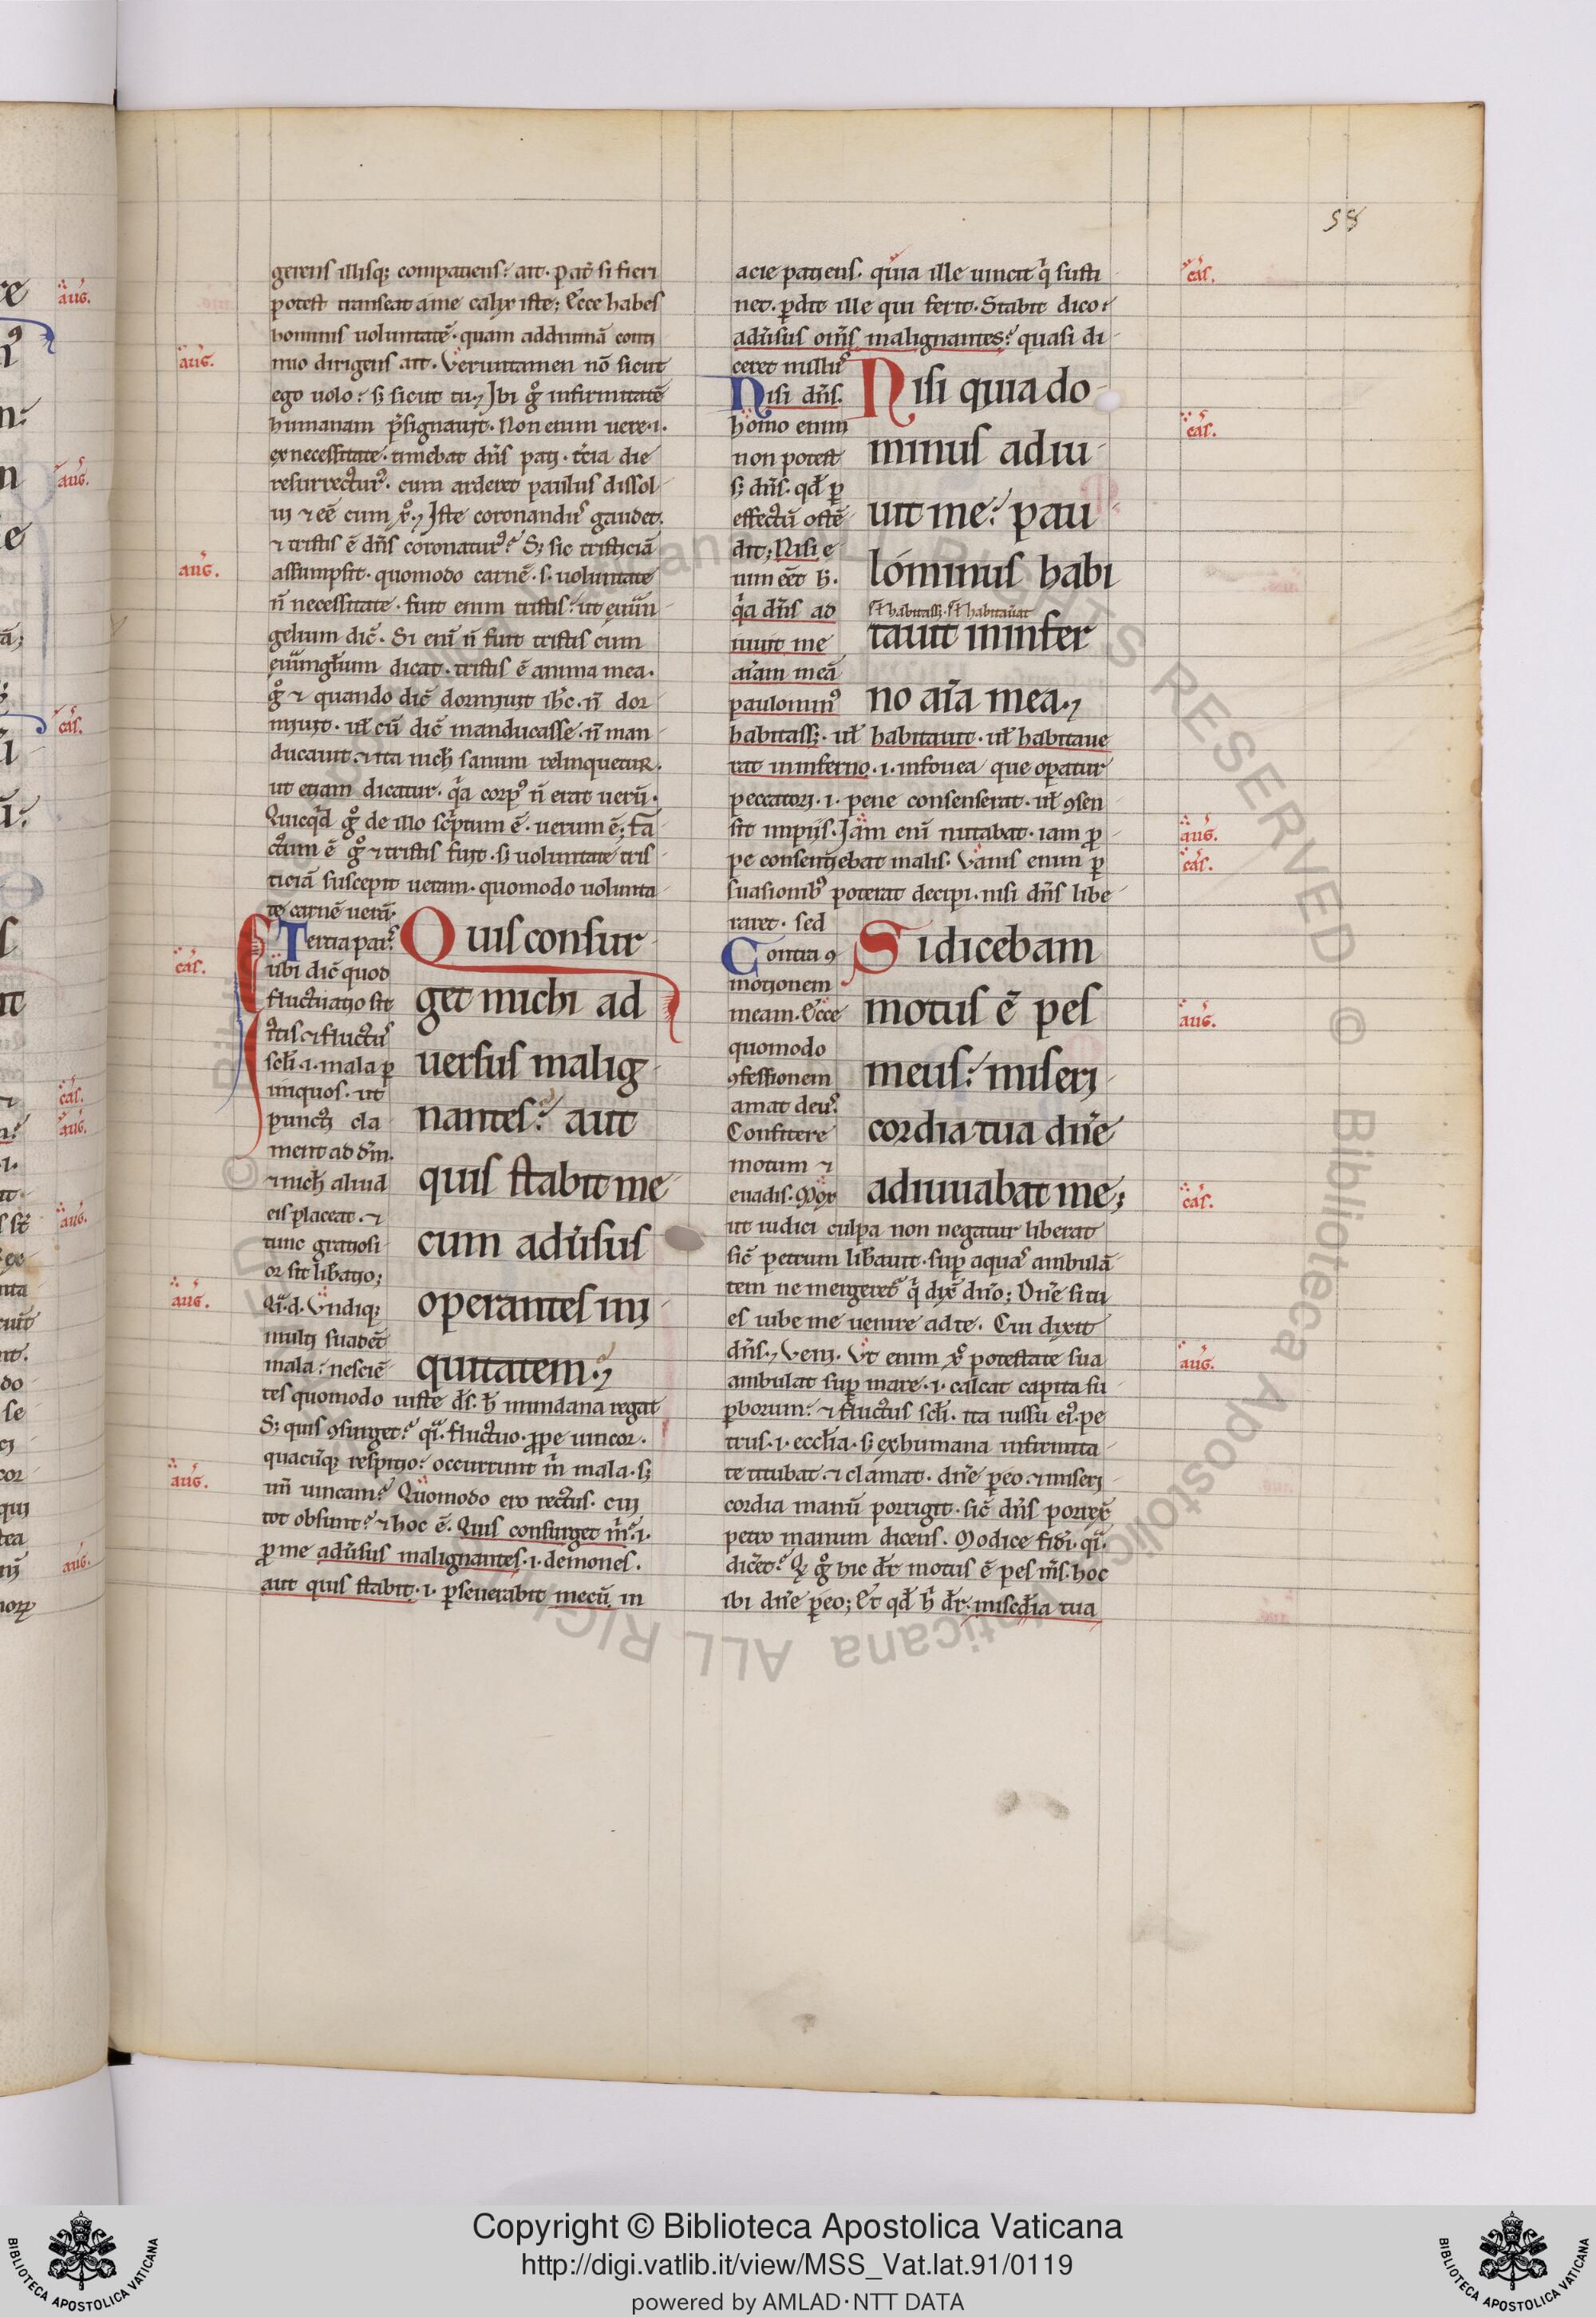 58
gerens illisq; compatiens? ait. pat̄ si fieri
potest transeat a me calix iste; Ecce habes
hominis uoluntatē. quam adduınā conti
nuo dirigens ait. Veruntamen nō sicut
ego uolo? s; sicut tu., Ibi gͦ infirmitatē
humanam p̄signauit. Non enim uere .i.
ex necessitate. timebat dn̄s pati. t̄cia die
resurrectur᷒. cum arderet paulus dissol
ui ⁊ eē cum xͦ., Iste coronandus gaudet.
⁊ tristis ē dn̄s coronatur᷒? S; sic tristiciā
assumpsit. quomodo carnē .s. uoluntate
n̄ necessitate. fuit enim tristis. ut euūn
gelium dic̄. Si eni n̄ fuit tristis cum
euūngl̄ium dicat. tristis ē anima mea.
gͦ ⁊ quando dic̄ dormiuit ih̄c. n̄ dor
miuit. ul̄ cū dic̄ manducasse. n̄ man
ducauit. ⁊ ita nich̄ sanum relinquetur.
ut etiam dicatur. qͣ corp᷒ n̄ erat uerū.
Quicqd gͦ de illo sc̄ptum ē. uerum ē; fa
ctum ē gͦ ⁊ tristis fuit. s; uoluntate tris
ticiā suscepit ueram. quomodo uolunta
te carnē uerā.
Tertia pars
ubi dic̄ quod
fluctuatio sit
t̄tis ⁊ fluctus
scl̄i .i. mala p
iniquos. ut
punct᷒ cla
ment ad dn̄m.
⁊ nich̄ aliud
eis placeat. ⁊
tunc gratiosi
or sit lib̄atio;
Qͥ.d. Vndiq;
multi suadēt
mala? nesciē
tes quomodo iuste d̄s. h̄ mundana regat
Quis consur
get michi ad
uersus malig
nantes? aut
quis stabit me
cum adūsus
operantes ini
quitatem.,
S; quis ꝯsurget? qͥ. fluctuo. ꝓpe uincor.
quacūq; respitio? occurrunt m̄ mala. s;
uīn uincam? Quomodo ero rectus. cui
tot obsunt? ⁊ hoc ē. Quis consurget m̄? .i.
ꝓ me adūsus malignantes .i. demones.
aut quis stabit .i. pseuerabit mecū in
acie patiens. quia ille uincit qͥ susti
net. pdit ille qui ferit. Stabit dico?
adūsus om̄s malignantes? quasi di
ceret nullus
Nisi dn̄s.
homo enim
non potest
s; dn̄s. qd̄ p
effectū ostē
dit; Nisi e
nim eēt h̄.
qͣa dn̄s ad
iuuit me
aīam meā
paulomin᷒
habitass;. ul̄ habitauit. ul̄ habitaue
Nisi quia do
minus adiu
uit me? pau
lominus habi
st̄ habitass; st̄ habitauat
tauit in infer
no aīa mea.,
rat in inferno .i. in fouea que operatur
peccatori .i. pene consenserat. ul̄ ꝯsen
sit impiis. Iam enī nutabat. iam ꝓ
pe consentiebat malis. Vanis enim p
suasionib᷒ poterat decipi. nisi dn̄s libe
raret. sed
Contra ꝯ
motionem
meam. Ecce
quomodo
ꝯfessionem
amat deus.
Confitere
motum ⁊
euadis. Mox
ut iudici culpa non negatur liberat
Si dicebam
motus ē pes
meus? miseri
cordia tua dn̄e
adiuuabat me;
sic̄ petrum lib̄auit. sup aquas ambulā
tem ne mergeret᷒ qͥ dix̄ dn̄o; Dn̄e si tu
es iube me uenire ad te. Cui dixit
dn̄s., Veni. Vt enim xͦ potestate sua
ambulat sup mare .i. calcat capita su
pborum? ⁊ fluctus scl̄i. ita iussu ei᷒. pe
trus .i. eccl̄ia. s; ex humana infirmita
te titubat. ⁊ clamat. dn̄e peo. ⁊ miseri
cordia manū porrigit. sic̄ dn̄s porrex̄
petro manum dicens. Modice fidi. qͥ.
dicēt? Q gͦ hic dr̄ motus ē pes m̄s. hoc
ibi dn̄e peo; Et qd̄ h̄ dr̄. misc̄dia tua
aug.
aug.
cas.
aug.
aug.
cas.
cas.
aug.
cas.
aug.
cas.
aug.
Copyright © Biblioteca Apostolica Vaticana
http://digi.vatlib.it/view/MSS_Vat.lat.91/0119
powered by AMLAD·NTT DATA
BIBLIOTECA APOSTOLICA VATICANA
BIBLIOTECA APOSTOLICA VATICANA